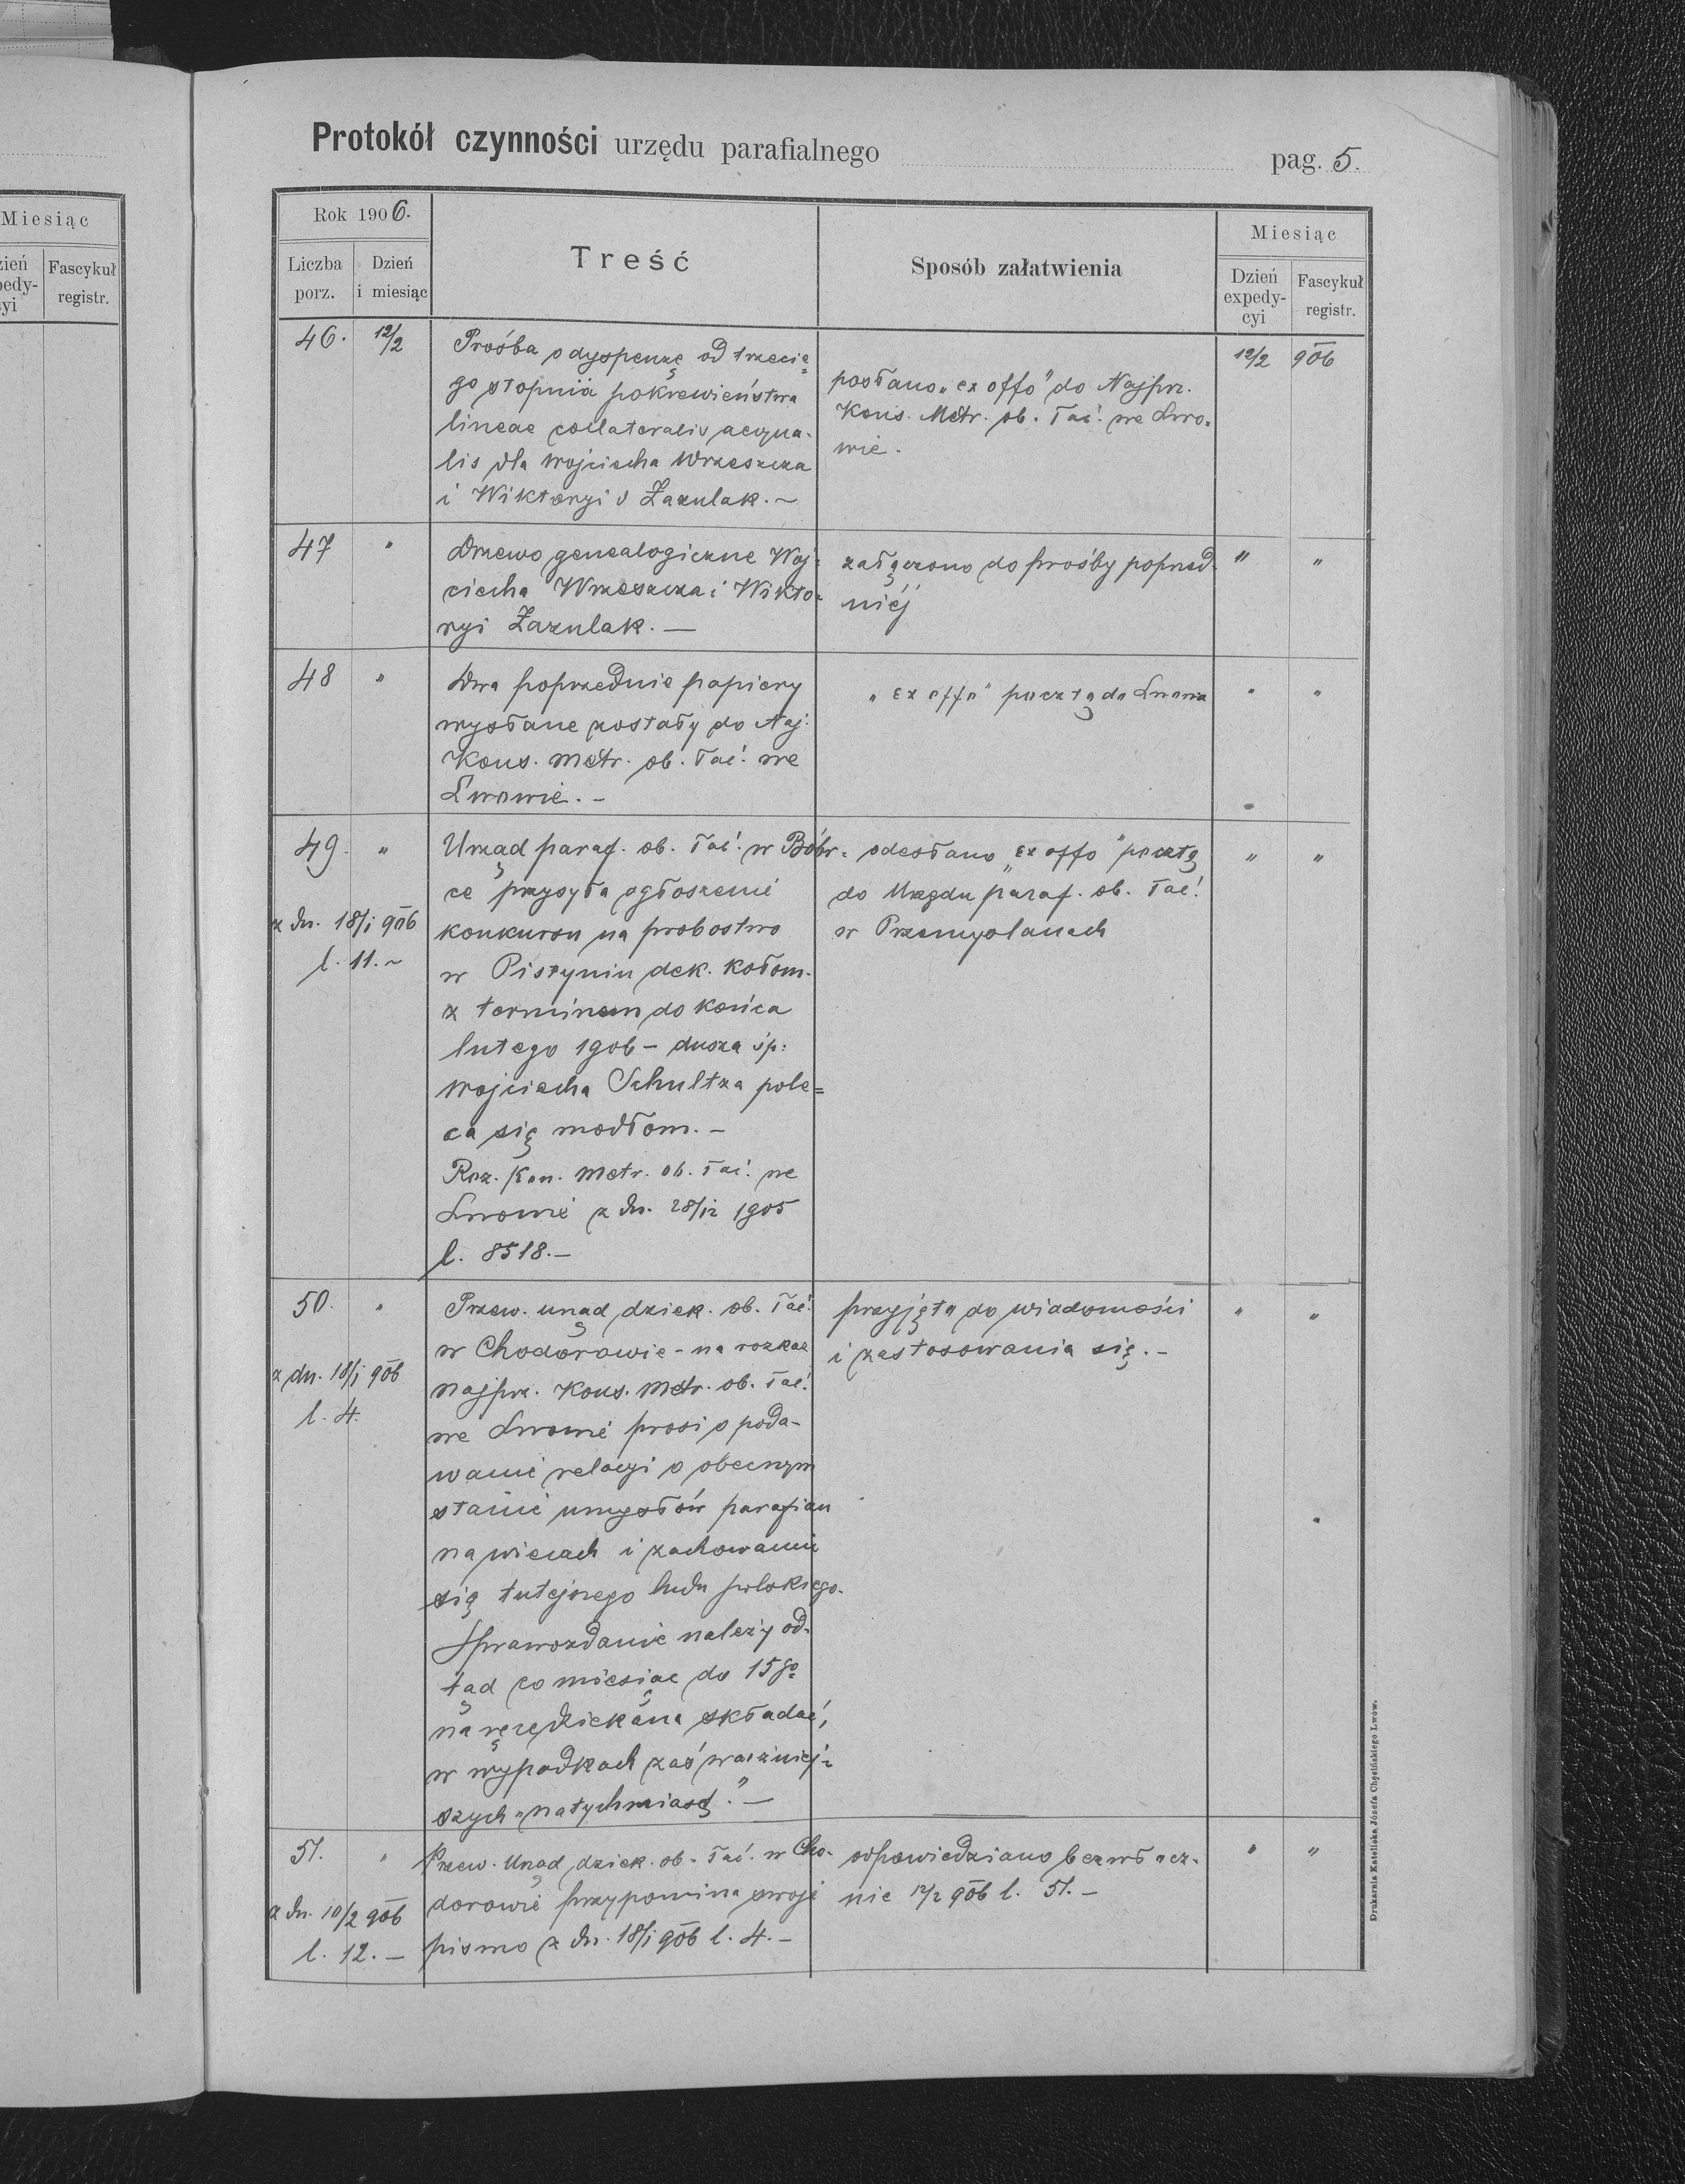 Miesiąc
Fascykuł
registr.
Protokół czynności urzędu parafialnego
pag. 5.
Rok 1906.
Liczba porz.
Dzień i miesiąc
Treść
Sposób załatwienia
Miesiąc
Dzień expedy-cyi
Fascykuł registr.
46. 12/2
Prośba o dyspenzę od trzecie=
go stopnia pokrewieństwa
lineae collateralis aequa-
lis dla Wojciecha Wrzeszcza
i Wiktoryi Zazulak. ~
posłano „ex offo" do Najprz.
Kons. Metr. ob. łać. we Lwo=
wie.
12/2 906
47 "
Drzewo genealogiczne Woj=
ciecha Wrzeszcza i Wikto=
ryi Zazulak. —
załączono do prośby poprzed-
niéj
" "
48 "
Dwa poprzednie papiery
wysłane zostały do Naj.
Kons. Metr. ob. łać. we
Lwowie. -
„ex offo" pocztą do Lwowa
" "
49. "
z dn. 18/I 906
l. 11. ~
Urząd paraf. ob. łać. w Bóbr=
ce przysyła ogłoszenie
konkursu na probostwo
w Pistyniu dek. kołom.
z terminem do końca
lutego 1906 - dusza śp:
Wojciecha Schultza pole=
ca się modłom. -
Roz. Kon. Metr. ob. łać. we
Lwowie z dn. 28/12 1905
l. 8518. —
odesłano „ex offo" pocztą
do Urzędu paraf. ob. łać.
w Przemyślanach
" "
50. "
z dn. 18/I 906
l. 4.
Przew. urząd dziek. ob. łać.
w Chodorowie - na rozkaz
najprz. Kons. Metr. ob. łać.
we Lwowie prosi o poda-
wanie relacyi o obecnym
stanie umysłów parafian
na wiecach i zachowaniu
się tutejszego ludu polskiego.
Sprawozdanie należy od-
tąd co miesiąc do 15go
na ręce dziekana składać,
w wypadkach zaś ważniej=
szych „natychmiast". —
przyjęto do wiadomości
i zastosowania się. -
" "
51. "
z dn. 10/2 906
l. 12. —
Przew. Urząd dziek. ob. łać. w Cho-
dorowie przypomina swoje
pismo z dn. 18/I 906 l. 4. -
odpowiedziano bezwłocz-
nie 12/2 906 l. 51. -
" "
Drukarnia Katolicka Józefa Chęcińskiego Lwów.